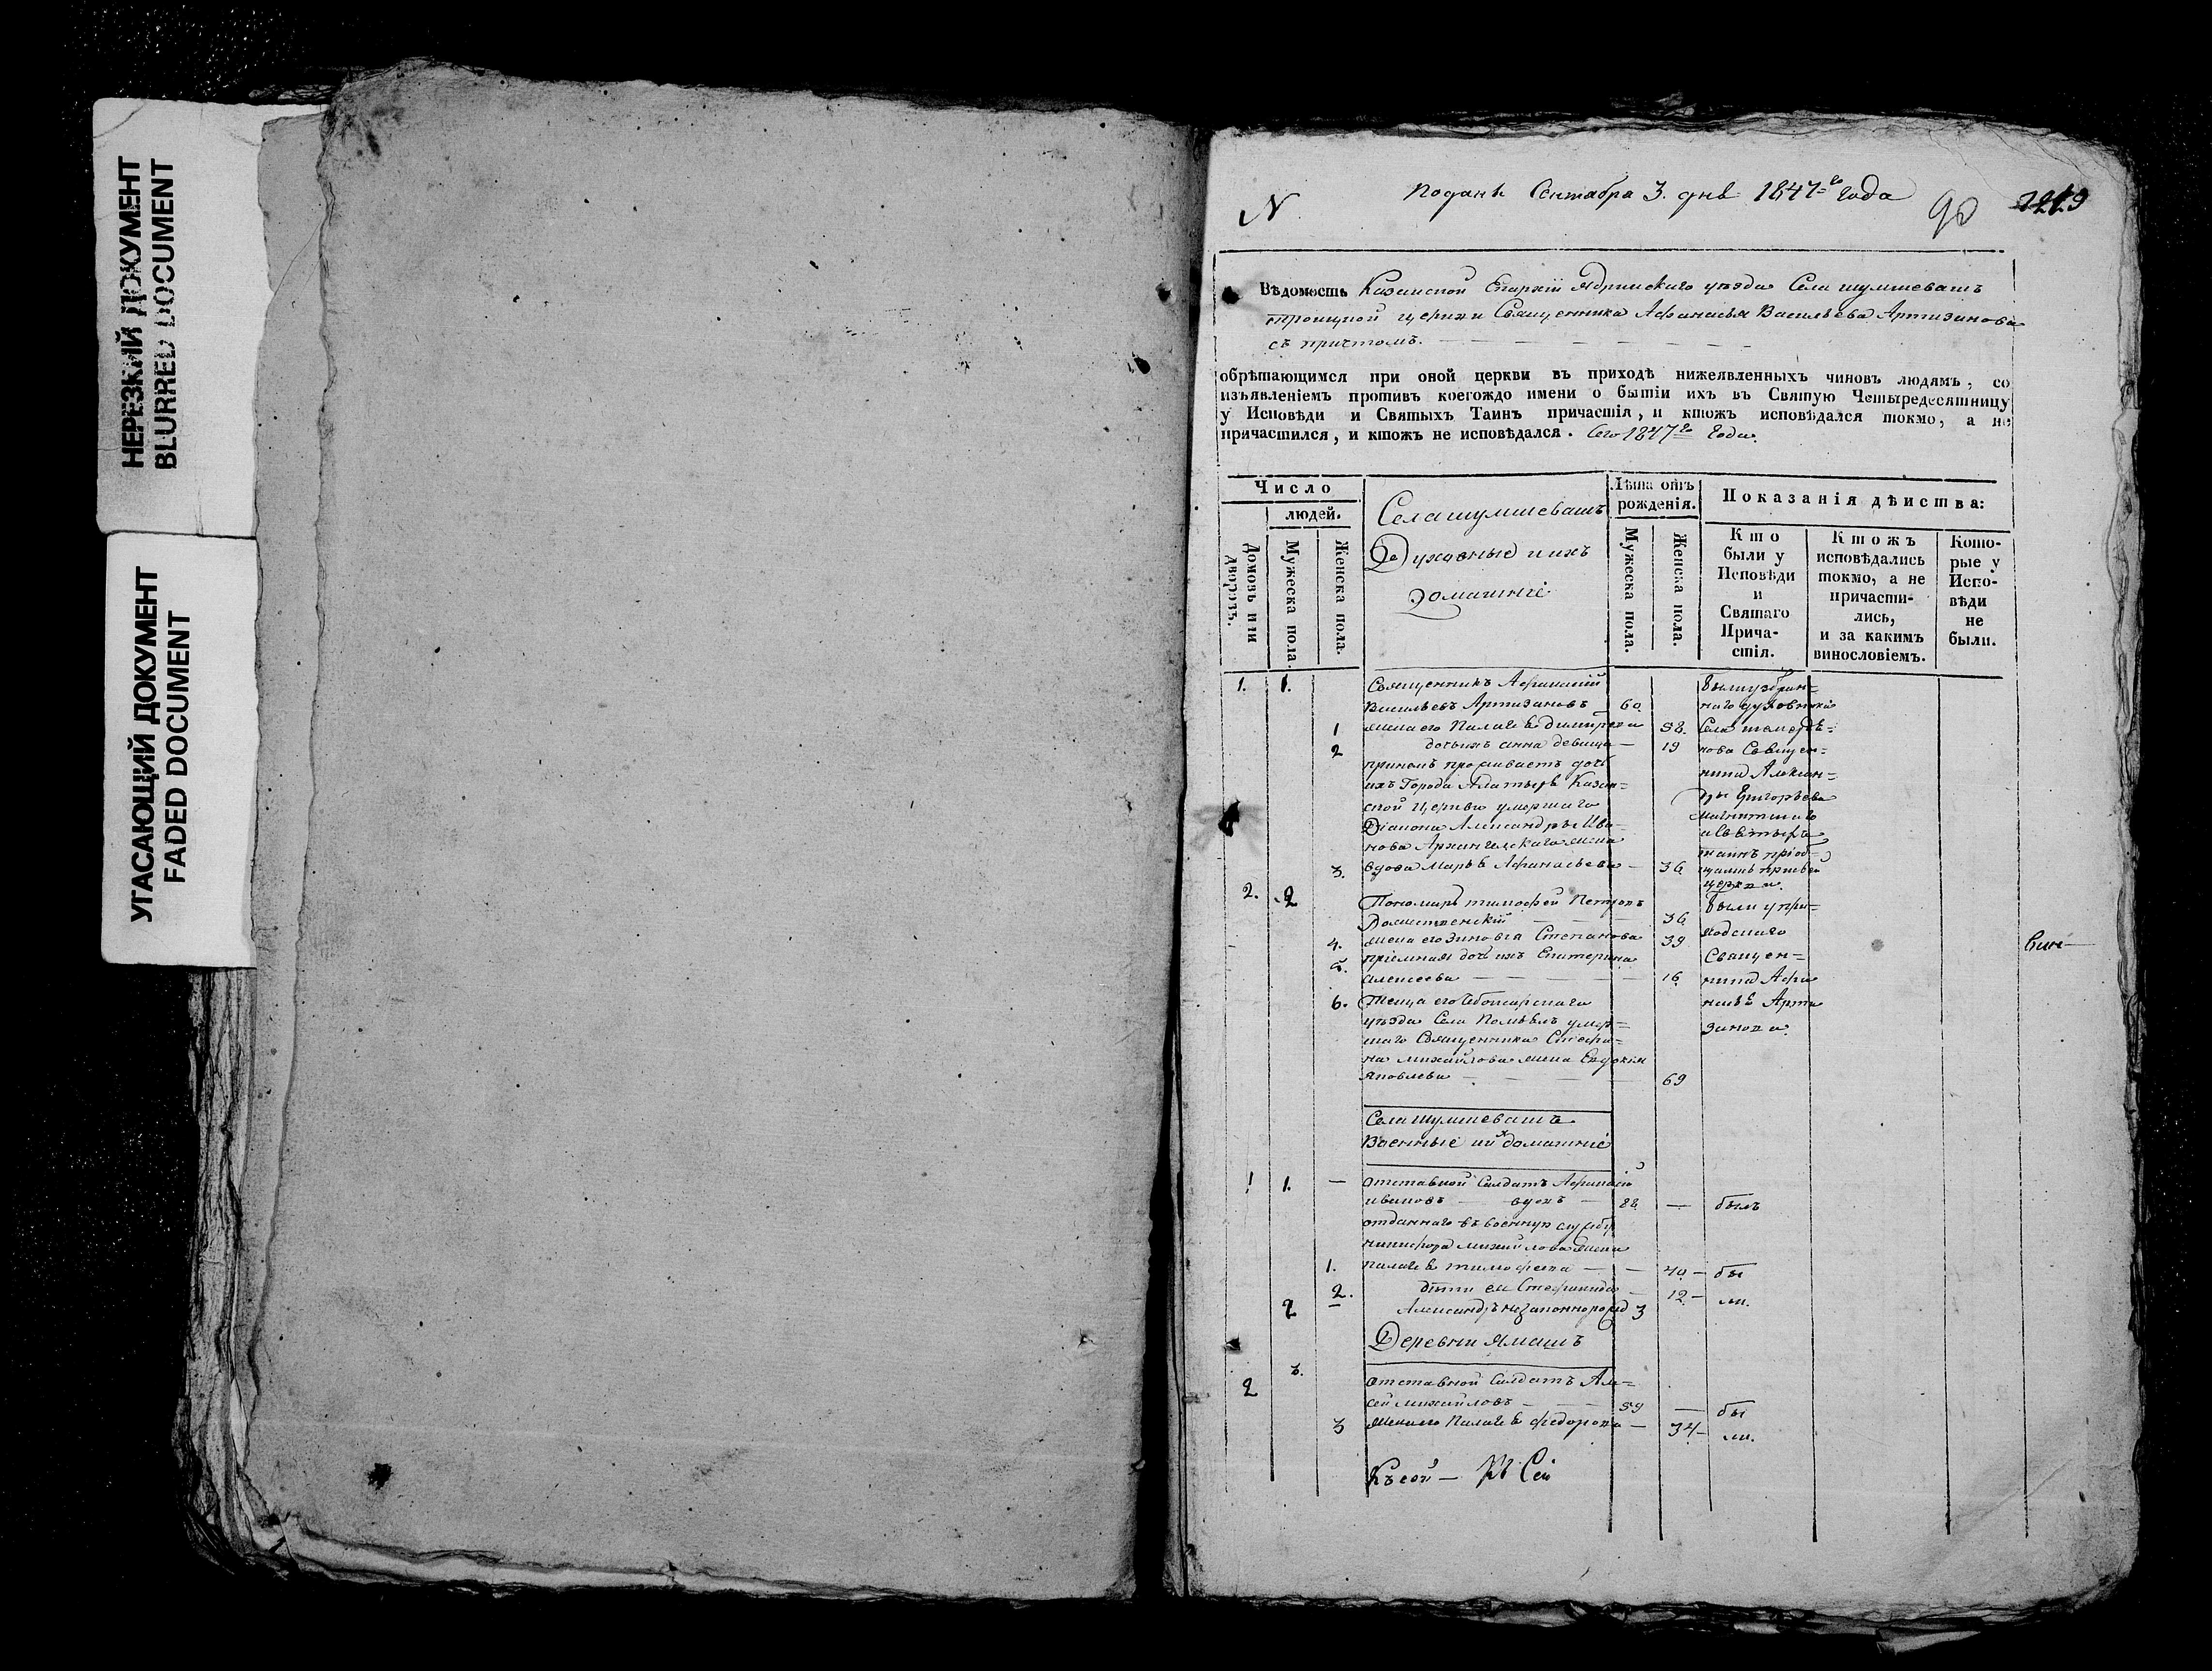 НЕРЕЗКИЙ ДОКУМЕНТ
BLURRED DOCUMENT
УГАСАЮЩИЙ ДОКУМЕНТ
FADED DOCUMENT
N
Поданъ Сентабра 3. дня 1847=го года
90
Вѣдомость Казанской Епархіи Ядринскаго уѣзда Села шумшевашъ
троицкой церкви Священника Аѳанасья Васильева Артизанова
съ причтомъ.
обрѣтающимся при оной церкви въ приходѣ нижеявленныхъ чиновъ людямъ, со
изъявленіемъ противъ коегождо имени о бытіи ихъ въ Святую Четыредесятницу
у Исповѣди и Святыхъ Таинъ причастія, и ктожъ исповѣдался токмо, а не
причастился, и ктожъ не исповѣдался. Сего 1847го Года.
Число
людей.
Домовъ или дворовъ.
Мужеска пола.
Женска пола.
Села шумшевашъ
Духовные и ихъ
домашніе
Лѣта отъ рожденія.
Мужеска пола.
Женска пола.
Показанія дѣиства:
Кто были у Исповѣди и Святаго Причастія.
Ктожъ исповѣдались токмо, а не причастились, и за какимъ винословіемъ.
Которые у Исповѣди не были.
1. 1. Священникъ Аѳанасій
Васильевъ Артизановъ 60.
1 жена его Палагѣя димитрева 58.
2 дочь ихъ анна девица — 19
притомъ проживаетъ дочь
ихъ Города Алатыря Казан=
ской Церкви умершаго
Діакона Александра Ива=
нова Архангельскаго жена
3. вдова Марья Аѳанасьева — 36
были у
наго духовника
Села
нова Священ=
ника Алексан=
дра Григорьева
и Святыхъ
таинъ пріоб=
церкви.
2. 2 Пономарь тимоѳей Петровъ
36
4. жена его Зиновья Степанова 39
5. пріемная дочь ихъ Екатерина
алексеева — 16
6. Теща его Чебоксарскаго
уѣзда Села Помьялъ умер=
шаго Священника Стефа=
на михайлова жена Евдокія
яковлева — 69
были у при=
ходскаго
Священ=
ника Аѳа
насья Арти
занова.
Села Шумшевашъ
Военные и ихъ домашніе
1 1. — отставной Салдатъ Аѳанасій
ивановъ — вдовъ — 88 — былъ
отданнаго въ военную службу
никифора михайлова жена
1. палагѣя тимофеева — 40 — бы
2. дѣти ея Стефанида — 12 — ли.
2 Александръ незаконнорожд 3
Деревни Ямашъ
2 3. отставной Салдатъ Але=
сей михайловъ — 59 — бы
3 жена его Палагѣя федорова — 34 — ли.
Къ сей — Къ Сей